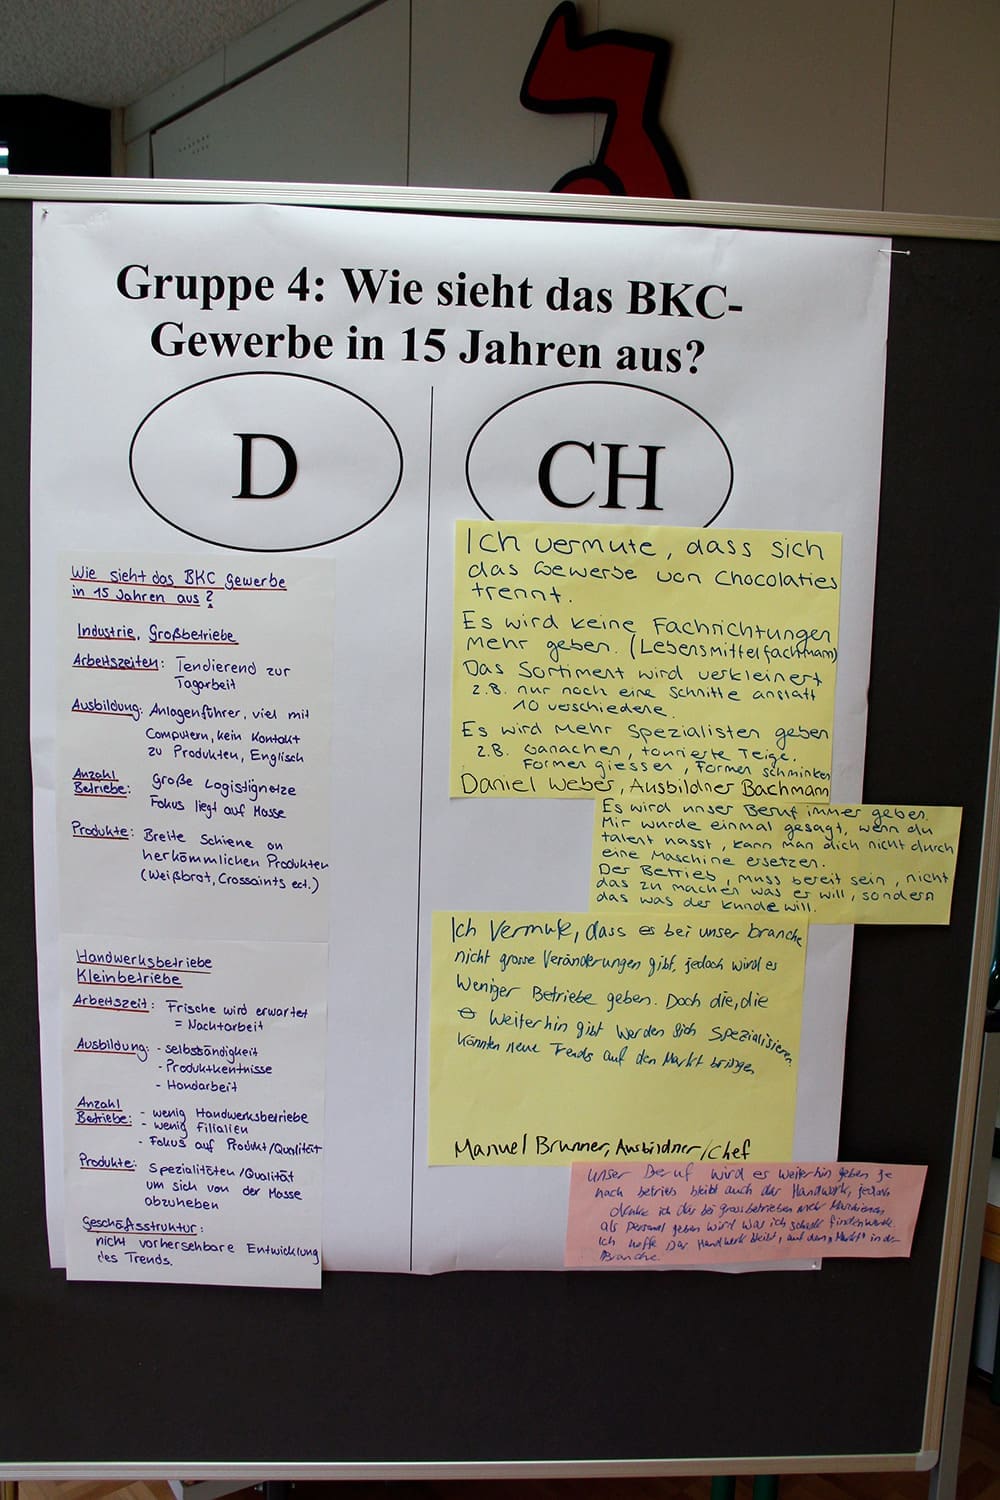 Gruppe 4: Wie sieht das BKC-
Gewerbe in 15 Jahren aus?
D
Wie sieht das BKC Gewerbe
in 15 Jahren aus?
Industrie, Großbetriebe
Arbeitszeiten: Tendierend zur
Tagarbeit
Ausbildung: Anlagenführer, viel mit
Computern, kein Kontakt
zu Produkten, Englisch
Anzahl
Betriebe: Große Logistignetze
Fokus liegt auf Masse
Produkte: Breite Schiene an
herkömmlichen Produkten
(Weißbrot, Crossaints ect.)
Handwerksbetriebe
Kleinbetriebe
Arbeitszeit: Frische wird erwartet
= Nachtarbeit
Ausbildung: - selbständigkeit
- Produktkentnisse
- Handarbeit
Anzahl
Betriebe: - wenig Handwerksbetriebe
- wenig Filialien
- Fokus auf Produkt/Qualität
Produkte: Spezialitäten/Qualität
um sich von der Masse
abzuheben
Geschäftsstruktur:
nicht vorhersehbare Entwicklung
des Trends.
CH
Ich vermute, dass sich
das Gewerbe von Chocolaties
trennt.
Es wird keine Fachrichtungen
mehr geben. (Lebensmittelfachmann)
Das Sortiment wird verkleinert
z.B. nur noch eine Schnitte anstatt
10 verschiedene.
Es wird mehr Spezialisten geben
z.B. Ganachen, tourierte Teige.
Formen giessen, Formen schminken
Daniel Weber, Ausbildner Bachmann
Es wird unser Beruf immer geben.
Mir wurde einmal gesagt, wenn du
talent hasst, kann man dich nicht durch
eine Maschine ersetzen.
Der Betrieb, muss bereit sein, nicht
das zu machen was er will, sondern
das was der Kunde will.
Ich Vermute, dass es bei unser branche
nicht grosse Veränderungen gibt, jedoch wird es
Weniger Betriebe geben. Doch die, die
Weiterhin gibt werden sich Spezialisieren
könnten neue Trends auf den Markt bringen
Manuel Brunner, Ausbildner/Chef
Unser Beruf wird es weiterhin geben je
nach betrieb bleibt auch das Handwerk, jedoch
denke ich das bei grossbetrieben mehr Maschienen
als personal geben wird was ich schade finden würde.
Ich hoffe Das Handwerk bleibt, auf dem "Markt" in der
Branche.